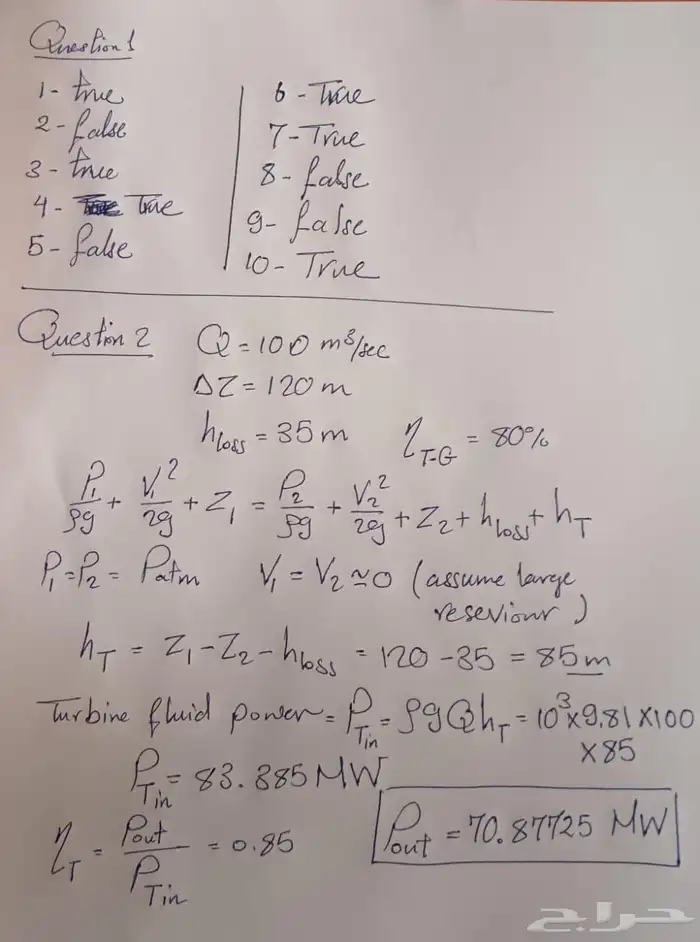 Question 1
1 - true
2 - false
3 - true
4 - True
5 - false
6 - True
7 - True
8 - false
9 - false
10 - True
Question 2
Q = 100 m³/sec
ΔZ = 120 m
h_loss = 35 m    η_T-G = 80%
P₁/ρg + V₁²/2g + Z₁ = P₂/ρg + V₂²/2g + Z₂ + h_loss + h_T
P₁ = P₂ = Patm    V₁ = V₂ ≃ 0 (assume large
reseviour)
h_T = Z₁ - Z₂ - h_loss = 120 - 35 = 85 m
Turbine fluid power = P_Tin = ρgQh_T = 10³ x 9.81 x 100
x 85
P_Tin = 83.385 MW
η_T = Pout/P_Tin = 0.85
Pout = 70.87725 MW
حراج